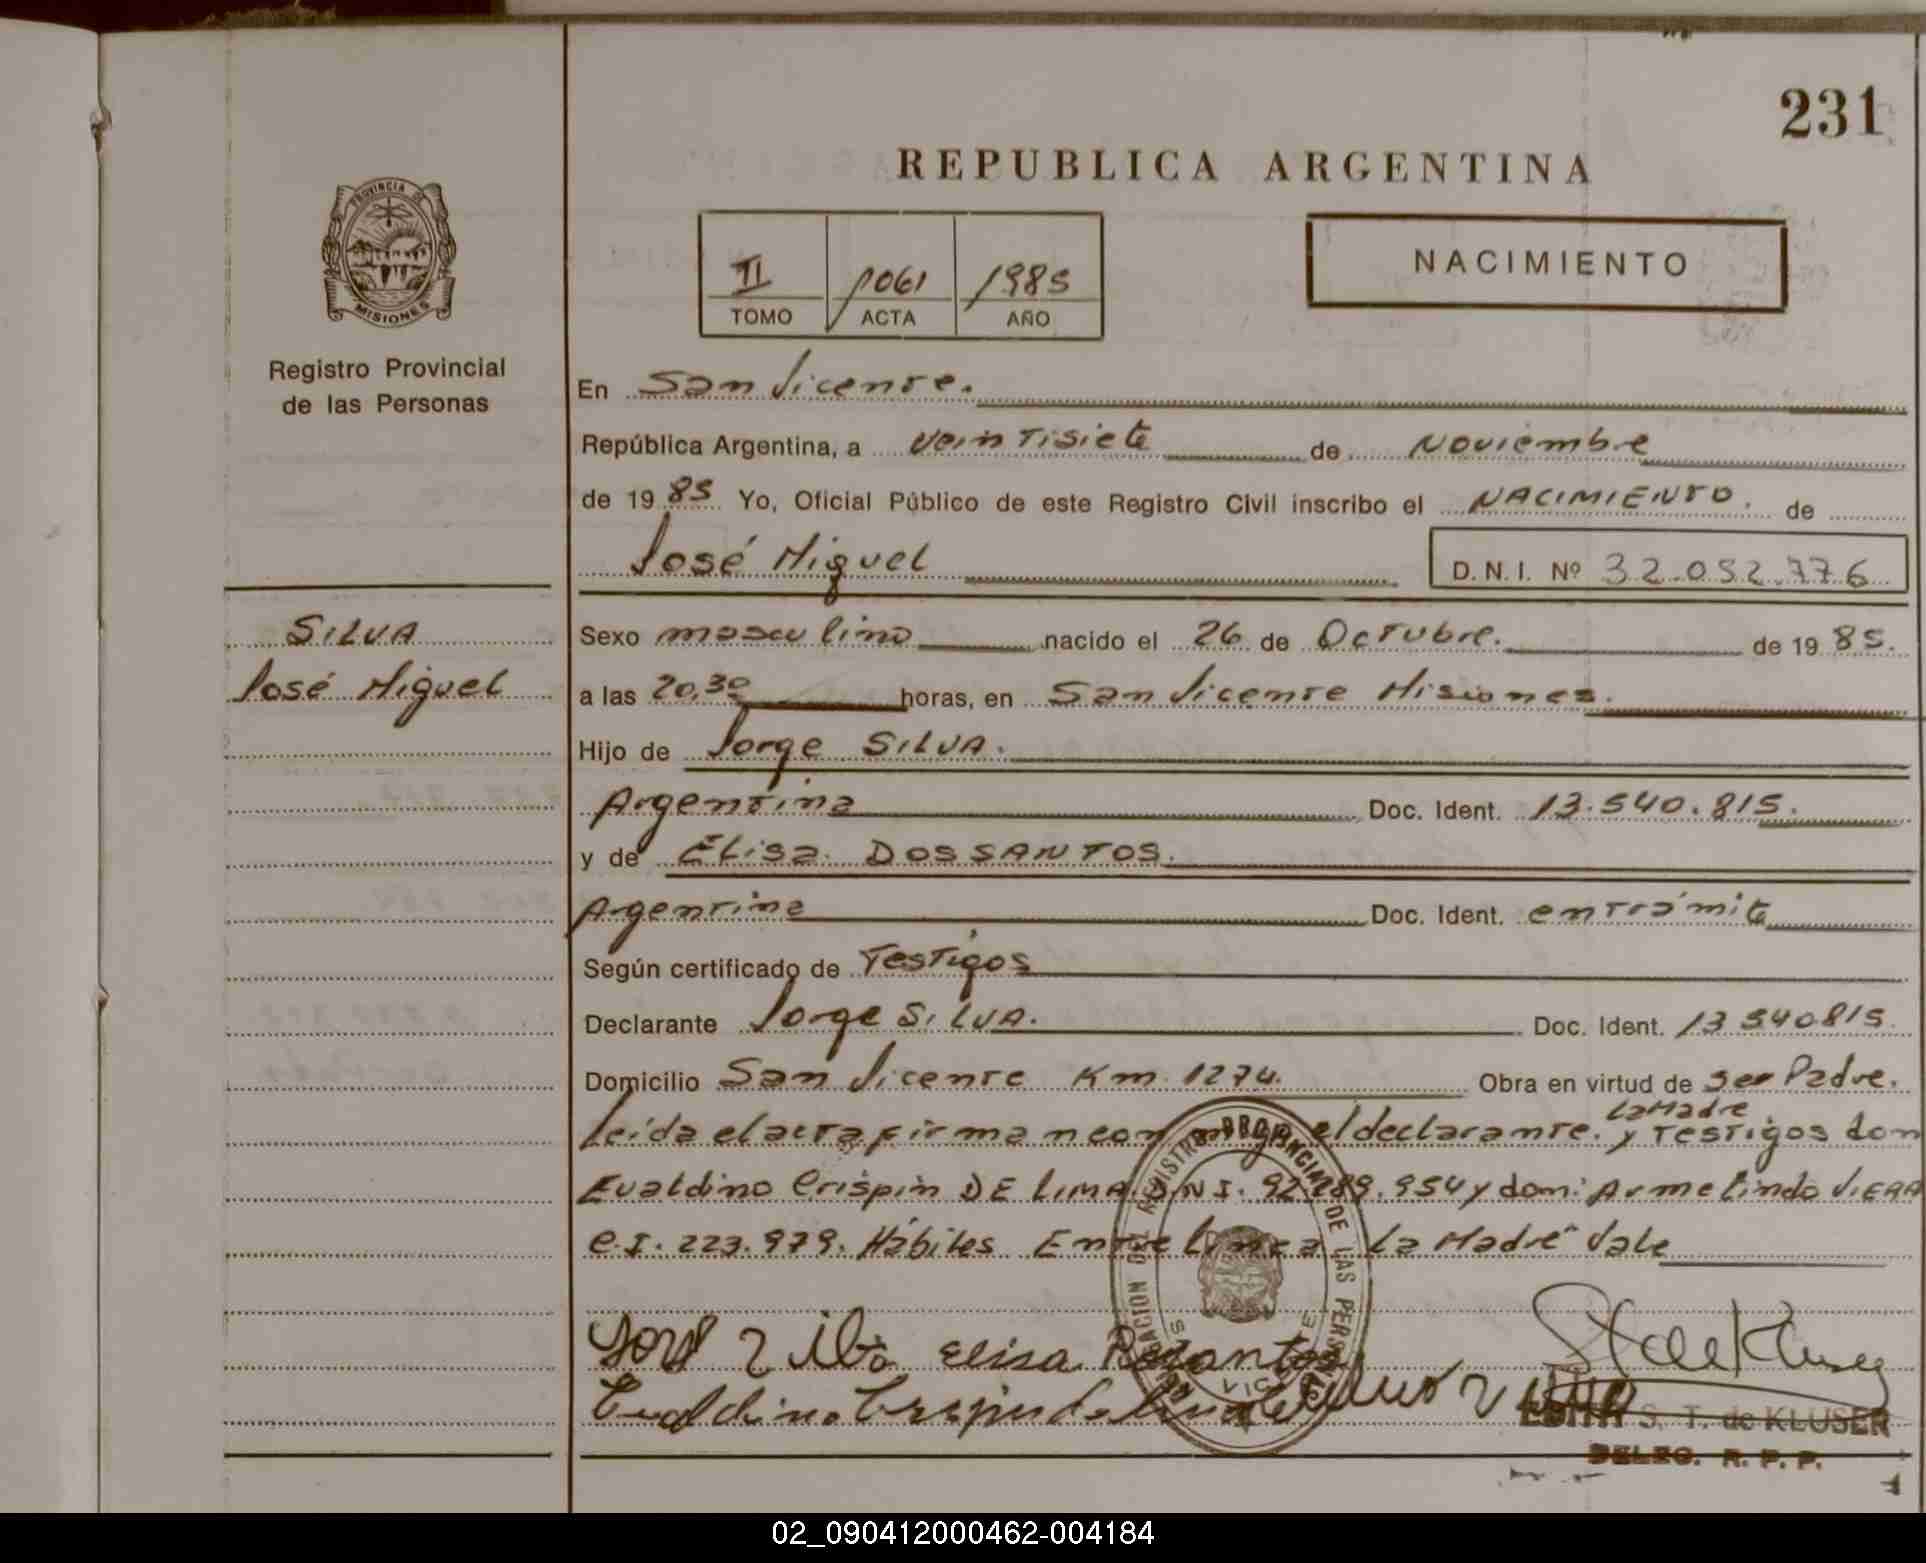 231
REPUBLICA ARGENTINA
PROVINCIA DE
MISIONES
Registro Provincial
de las Personas
II 1061 1985
TOMO ACTA AÑO
NACIMIENTO
En San Vicente.
República Argentina, a veintisiete de Noviembre
de 19 85 Yo, Oficial Público de este Registro Civil inscribo el NACIMIENTO. de
José Miguel D.N.I. Nº 32.052.776
SILVA
José Miguel
Sexo masculino nacido el 26 de Octubre. de 19 85.
a las 20,30 horas, en San Vicente Misiones.
Hijo de Jorge SILVA.
Argentina Doc. Ident. 13.540.815.
y de Elisa DOSSANTOS.
Argentina Doc. Ident. entrámite
Según certificado de Testigos
Declarante Jorge SILVA. Doc. Ident. 13 540815.
Domicilio San Vicente Km 1274. Obra en virtud de ser Padre.
La Madre
Leída el acta firman conmigo el declarante. y Testigos don
Evaldino Crispin DE LIMA. D.N.I. 92.289.954 y don: Armelindo VIERA
C.I. 223.979. Hábiles Entre linea La Madre" Vale
Elisa
EDITH S. T. de KLUSER
DELEG. R. P. P.
02_090412000462-004184